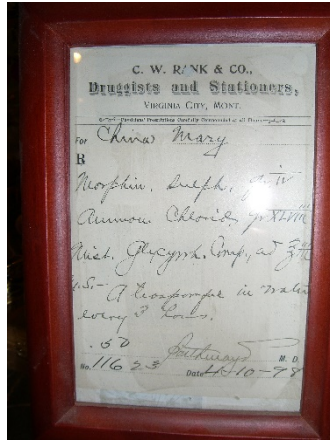 C. W. RANK & CO.,
Druggists and Stationers,
VIRGINIA CITY, MONT.
For China Mary
R
Morphin. Sulph. gr iv
Ammon Chlorid, gr XLVIII
Mist. Glycyrrh. Comp., ad
A teaspoonful in water
every 3 hours.
.50
No. 11623 Date 4-10-98
M. D.